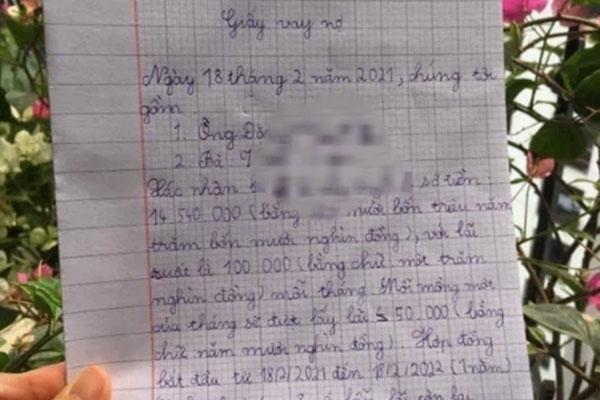 Giấy vay nợ
Ngày 18 tháng 2 năm 2021, chúng tôi
gồm
1. Ông Đỗ
2. Bà
Xác nhận số tiền
14 540.000 (bằng mười bốn triệu năm
trăm bốn mươi nghìn đồng), với lãi
suất là 100.000 (bằng chữ một trăm
nghìn đồng) mỗi tháng. Mỗi mồng một
của tháng sẽ được lấy lãi 50.000 (bằng
chữ năm mươi nghìn đồng). Hợp đồng
bắt đầu từ 18/2/2021 đến 18/2/2022 (1 năm)